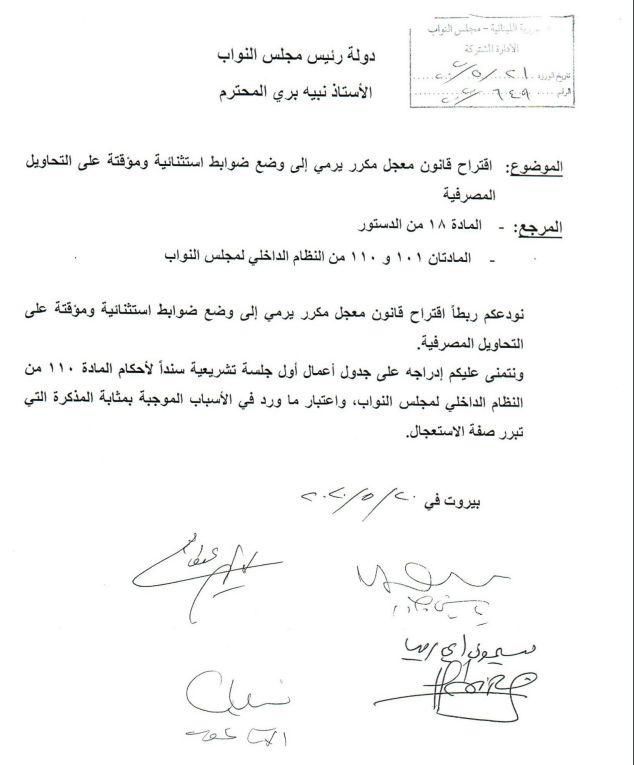 الجمهورية اللبنانية - مجلس النواب
الإدارة المشتركة
تاريخ الورود ٢١/٥/٢٠
الرقم ٦٤٩
دولة رئيس مجلس النواب
الأستاذ نبيه بري المحترم
الموضوع: اقتراح قانون معجل مكرر يرمي إلى وضع ضوابط استثنائية ومؤقتة على التحاويل
المصرفية
المرجع: - المادة ١٨ من الدستور
- المادتان ١٠١ و ١١٠ من النظام الداخلي لمجلس النواب
نودعكم ربطاً اقتراح قانون معجل مكرر يرمي إلى وضع ضوابط استثنائية ومؤقتة على
التحاويل المصرفية.
ونتمنى عليكم إدراجه على جدول أعمال أول جلسة تشريعية سنداً لأحكام المادة ١١٠ من
النظام الداخلي لمجلس النواب، واعتبار ما ورد في الأسباب الموجبة بمثابة المذكرة التي
تبرر صفة الاستعجال.
بيروت في ٢٠/٥/٢٠٢٠
سيمون ابي رميا